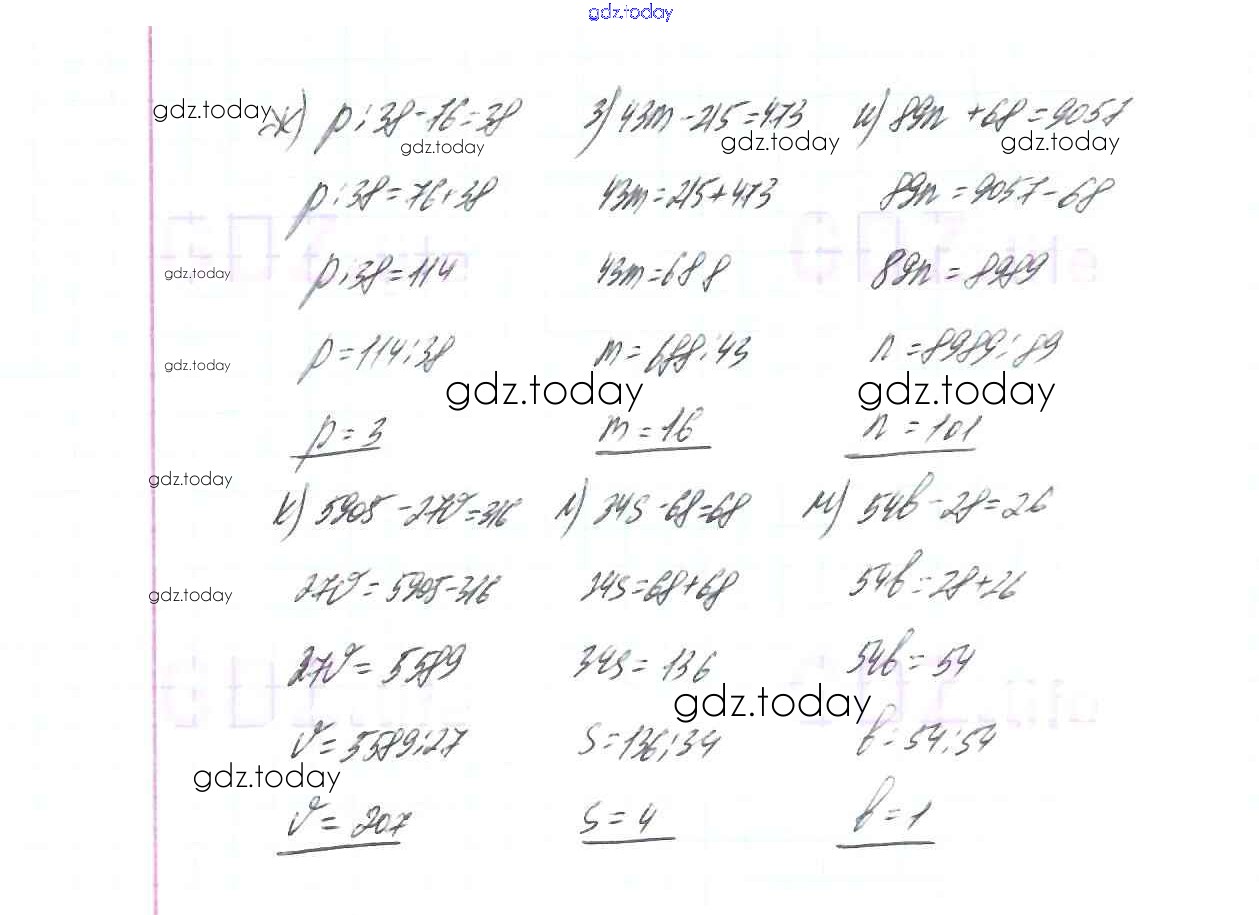 gdz.today
gdz.today ж) p:38-76=38 з) 43m-215=473 и) 89n +68=9057
gdz.today gdz.today gdz.today
p:38=76+38 43m=215+473 89n=9057-68
gdz.today p:38=114 43m=688 89n=8989
gdz.today p=114:38 m=688:43 n=8989:89
gdz.today gdz.today
p=3 m=16 n=101
gdz.today
к) 5905-27v=316 л) 34s-68=68 м) 54b-28=26
gdz.today 27v=5905-316 34s=68+68 54b=28+26
27v=5589 34s=136 54b=54
gdz.today
v=5589:27 s=136:34 b=54:54
gdz.today
v=207 s=4 b=1